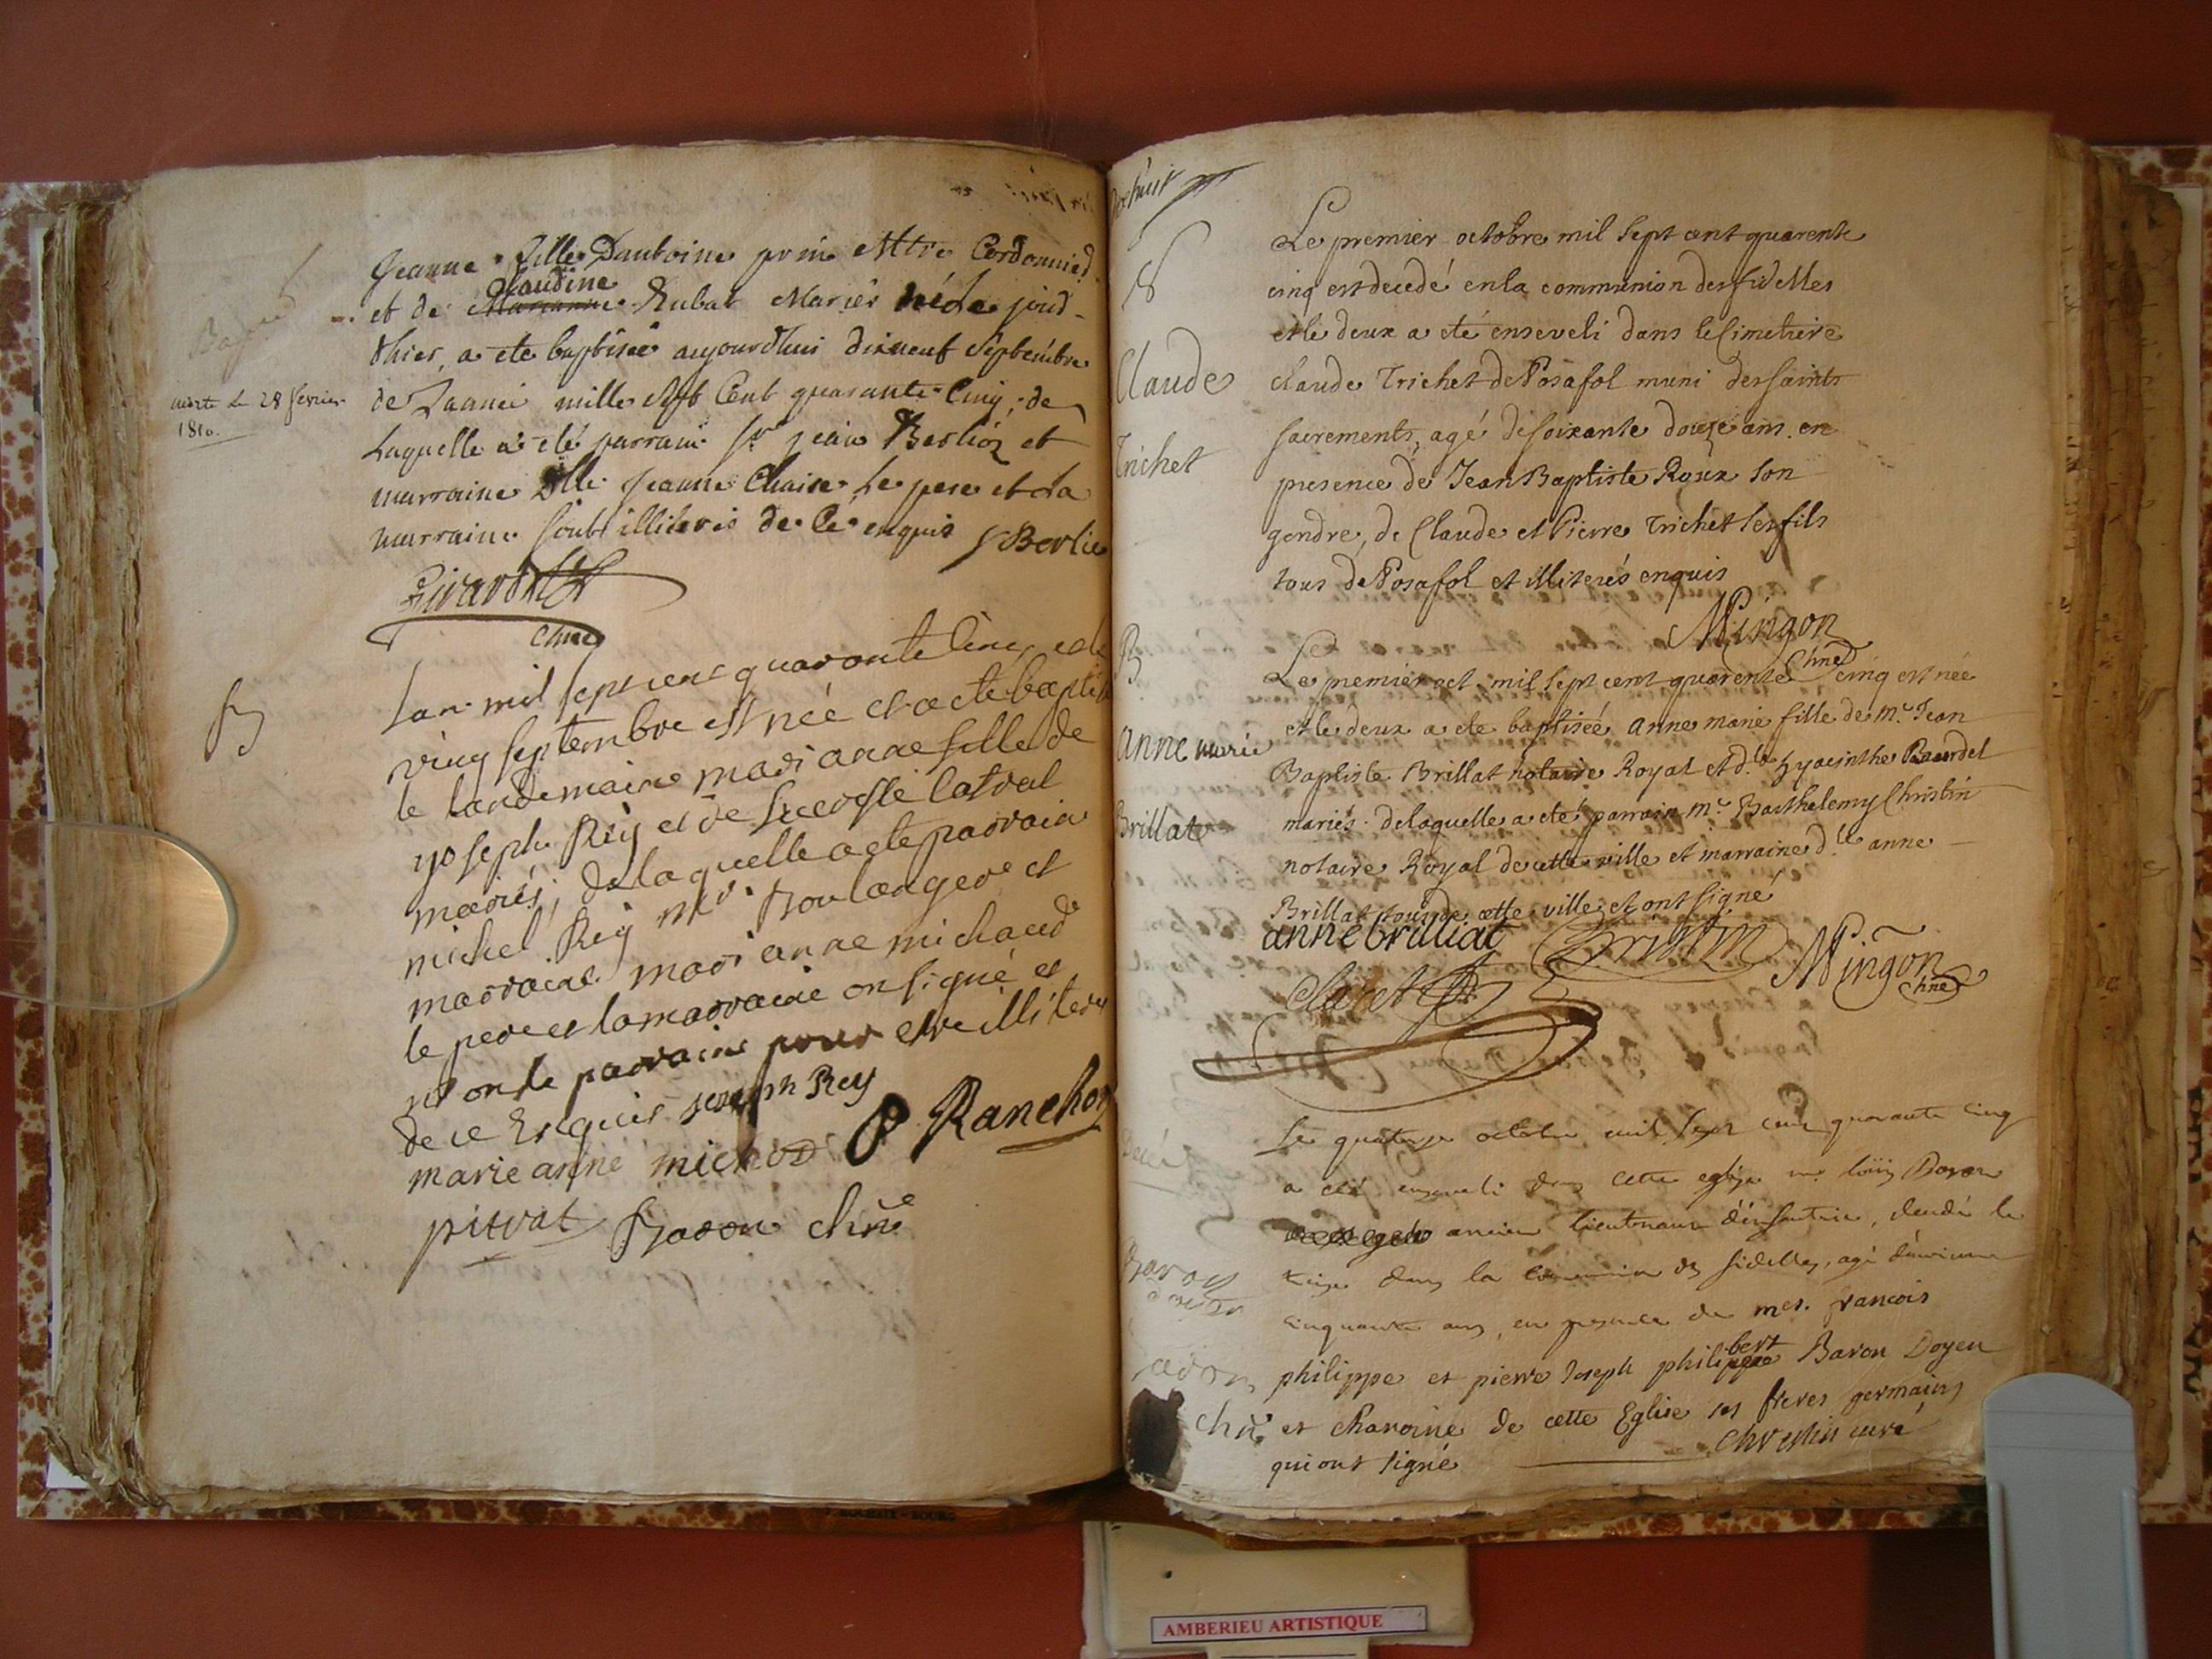 Jeanne fille Dantoine prin Mtre Cordonnied
Claudine
et de Marianne Rubat Mariés née le jeud
morte le 28 fevrier
1810.
dhier, a ete baptisée aujourdhuit dixneuf septembre
de Lannée mille sept Cent quarante Cinq, de
Laquelle a eté parrain Sr jean Berlioz et
marraine dlle Jeanne Chaise Le pere et La
marraine sont illiterés de Ce enquis Berlie
Girardet
Chne
B
Lan mil sept cent quarante Cinq et le
vinq septembre est née et a ete baptisé
le landemain mari anne fille de
yoseph Rey et de
mariés, de laquelle a ete parrain
michel Rey Mr Boulanger et
marraine mari anne michaud
le pere et la marraine on signé et
non le parrain pour etre illiteré
de ce Enquis joseph Rey
marie anne michod P Ranchon
pitrat Baron chne
dixhuit
S
Claude
Trichet
Le premier octobre mil sept cent quarente
cinq est decedé en la communion des fidelles
et le deux a eté enseveli dans le Cimetiere
claude Trichet de Posafol muni des saints
sacrements, agé de soixante douze ans en
presence de Jean Baptiste Roux son
gendre, de Claude et Pierre Trichet ses fils
tous de Posafol et illiterés enquis
Mingon
Chne
B
anne marie
Brillat
Le
Le premier oct. mil sept cent quarente cinq est née
et le deux a ete baptisée anne marie fille de mr. Jean
Baptiste Brillat notaire Royal et dlle hyacinthe
mariés. de laquelle a eté parrain mr. Barthelemy Christin
notaire Royal de cette ville et marraine dlle anne
Brillat tous de cette ville et ont signé
anne brilliat Christin Mingon
Chne
Claret
Le quatorze octobre mil sept cent quarante cinq
a eté enseveli dans cette eglise mr loüis Baron
ancien lieutenant d'infanterie, decedé le
treize dans la communion des fidelles, agé d'environ
cinquante ans, en presence de mes. francois
philippe et pierre Joseph philibert Baron Doyen
et chanoine de cette Eglise ses freres germains
qui ont signé chrestin curé
Baron
doyen
Baron
chne
AMBERIEU ARTISTIQUE